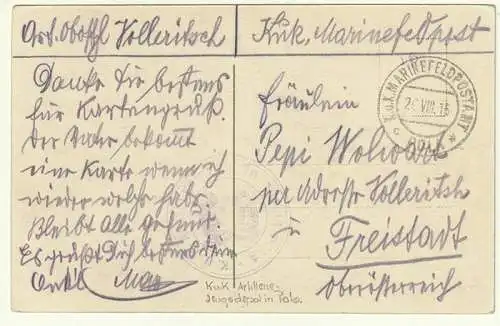 Art. Volleritsch
K.u.k. Marinefeldpost
Danke Dir bestens
für Kartengruß.
Der Vater bekommt
eine Karte wenn ich
wieder welche habe.
Bleibt alle gesund.
Es grüßt Dich bestens Dein
Onkel Max
K.u.K. MARINEFELDPOSTAMT
VIII. 15
c
Fräulein
Pepi
per Adresse Volleritsch
in
Freistadt
Oberösterreich
K.u.K. Artillerie-
zeugsdepot in Pola.